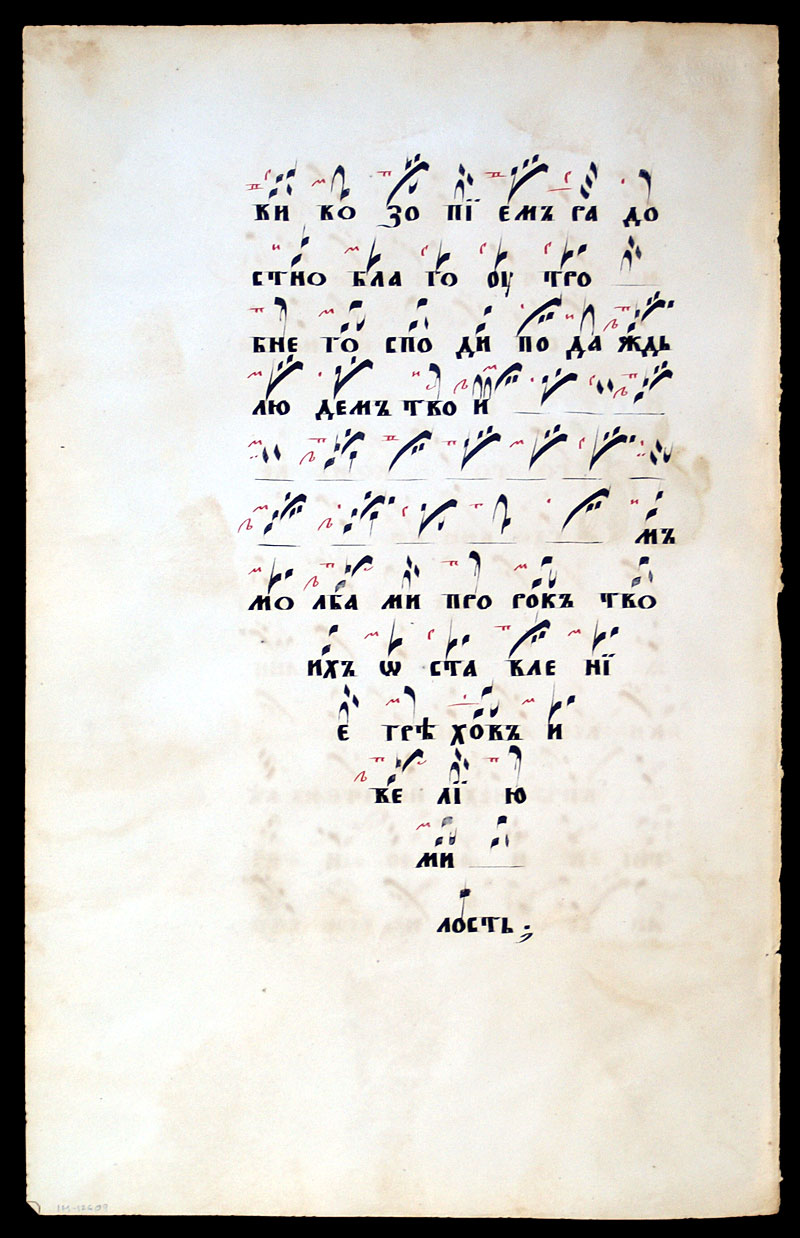 ки ко зо пї емъ ра до
стно бла го оу тро
бне го спо ди по да ждь
лю демъ тво и
мъ
мо лба ми про рокъ тво
ихъ ѡ ста вле нї
е грѣ ховъ и
ве лї ю
ми
лость ;